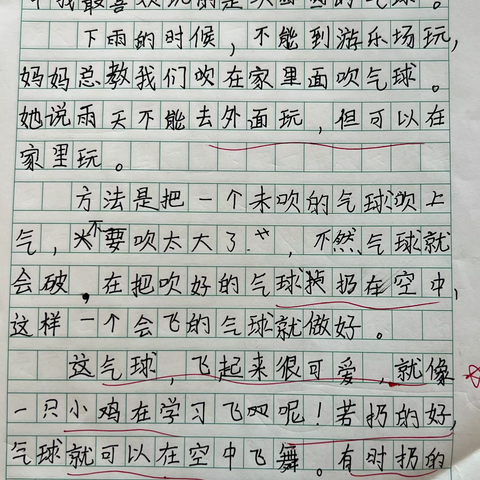 个我最喜欢玩的是吹出去的气球。
下雨的时候，不能到游乐场玩，
妈妈总教我们吹在家里面吹气球。
她说雨天不能去外面玩，但可以在
家里玩。
方法是把一个未吹的气球吹上
气，不要吹太大了，不然气球就
会破，在把吹好的气球扔在空中，
这样一个会飞的气球就做好。
这气球，飞起来很可爱，就像
一只小鸡在学习飞呢！若扔的好，
气球就可以在空中飞舞。有时扔的